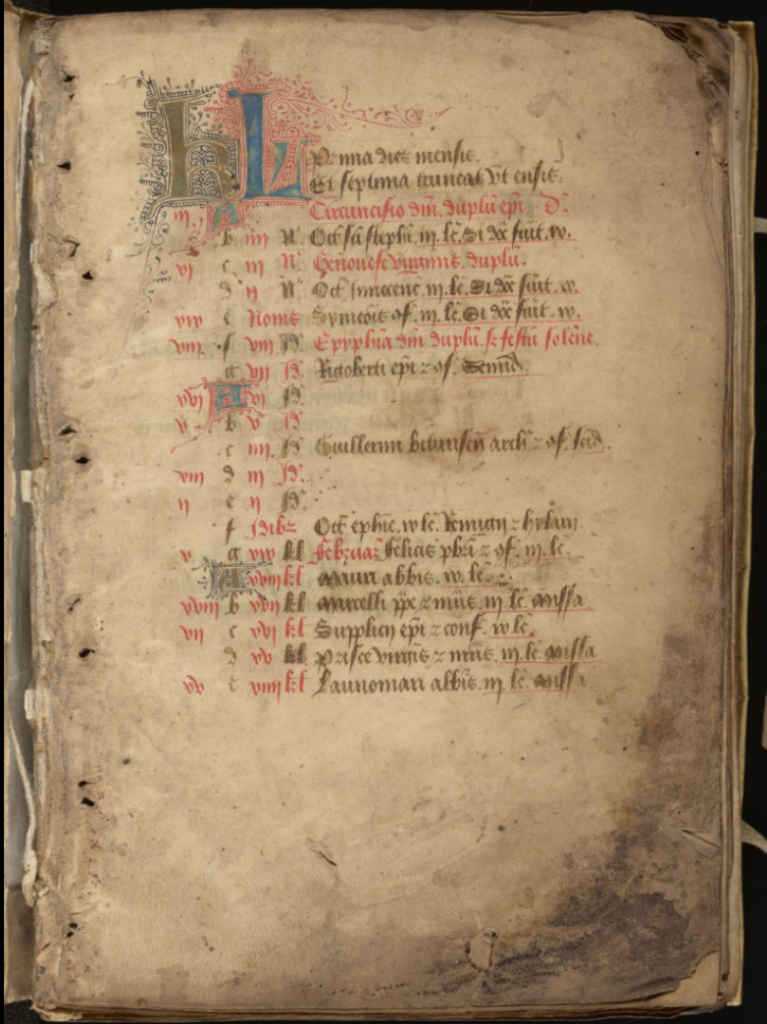 KL Prima dies mensis.
Et septima truncat vt ensis.
iii A Circuncisio dm̄. duplū epī D.
b iiii N̄. Oct̄ sc̄i stephī. iii. lc̄. Si dōc̄ fuīt.
vi c iii N̄. Genouefe virginis. duplū.
d ii N̄ Oct̄ Innocenc̄. iii. lc̄. Si dōc̄ fuīt.
e Nonis Symeōis 9f. iii lc̄. Si dōc̄ fuīt.
viii f viii Id. Epyphīa dm̄ duplū. festū solēne.
g vii Id. Rigoberti epī ⁊ 9f. Semid.
xvi A vi Id.
v b v Id.
c iiii. Id. Guillermi bituriseñ arch̄ ⁊ 9f.
xiii d iii Id.
ii e ii Id.
f Idibꝫ Oct̄ ephīe. ix lc̄. Remigii ⁊ hylarii
x g xix kl februar̄ Felicis pb̄ri ⁊ 9f. iii. lc̄.
A xviii kl Mauri abbīs. lc̄.
xviii b xvii kl Marcelli pp̄e ⁊ mr̄is. iii lc̄. Missa
vii c xvi kl Supplicii epī ⁊ conf. ix lc̄.
d xv kl Prisce virgīs ⁊ mr̄is. iii. lc̄. Missa
xv e xiiii kl Launomari abbīs. iii lc̄. Missa